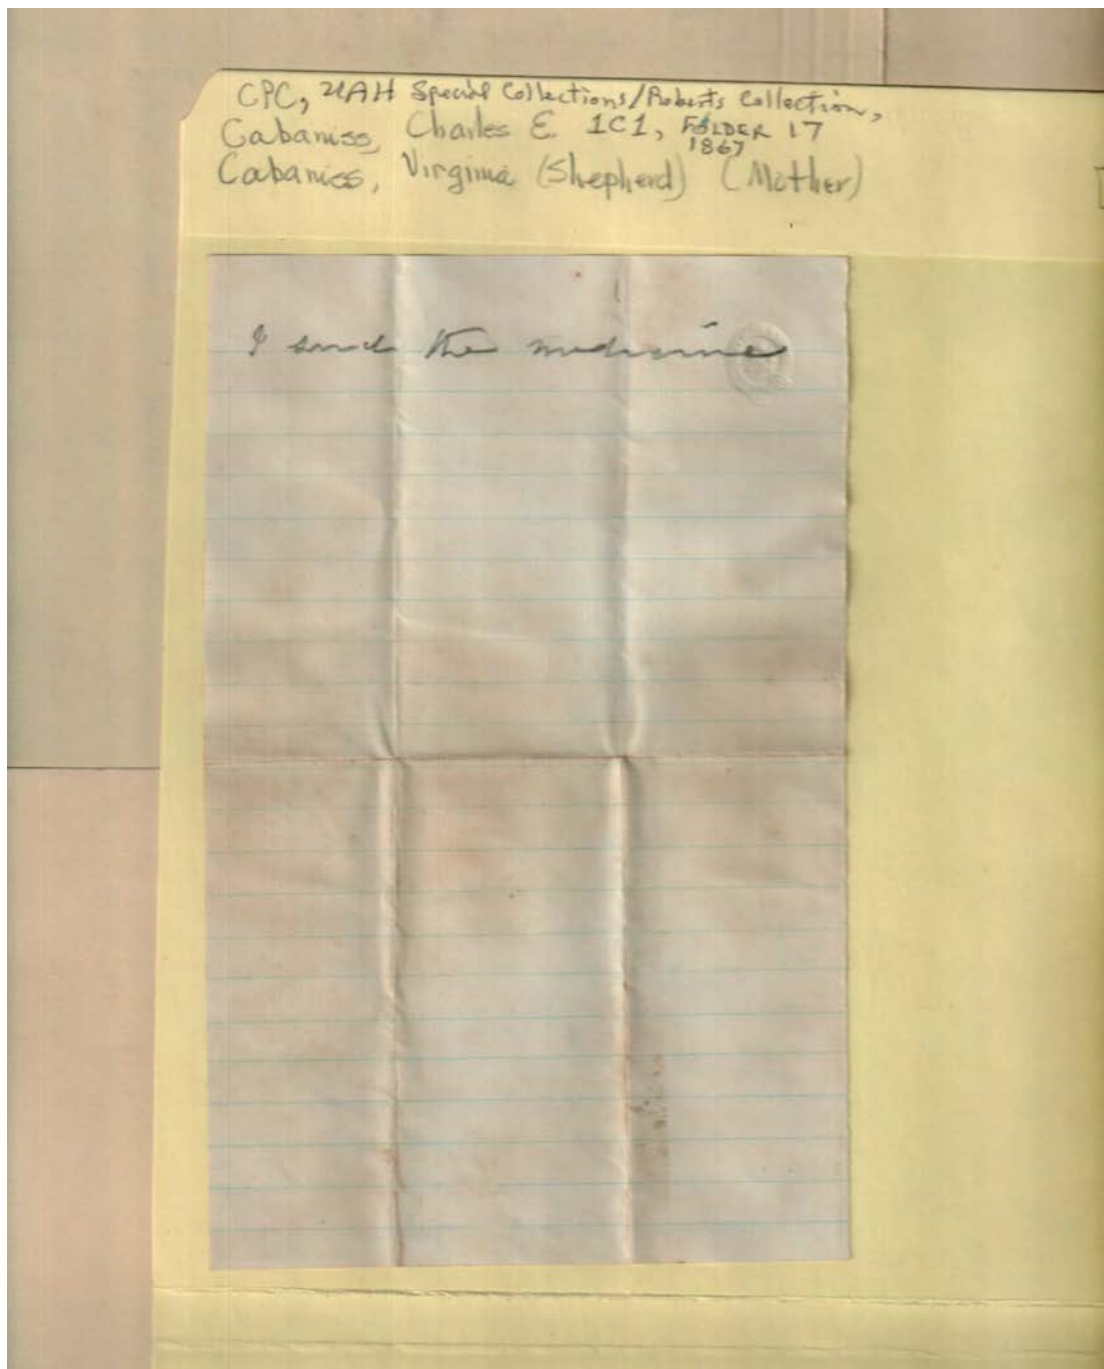 CPC, UAH Special Collections/Roberts Collection,
Cabaniss, Charles E. 1C1, FOLDER 17
1867
Cabaniss, Virginia (Shepherd) (Mother)
I send the medicine